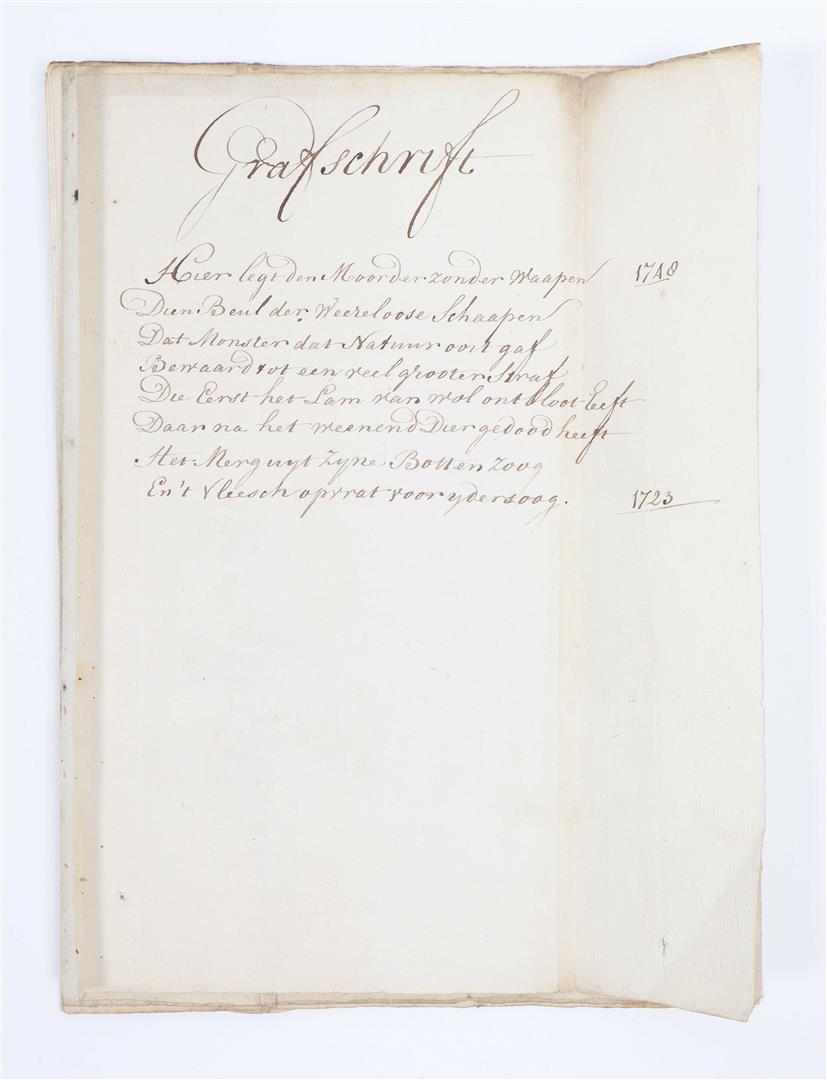 Grafschrift
Hier legt den Moorder zonder Waapen 1748
Dien Beul der Weereloose Schaapen
Dat Monster dat Natuur ooit gaf
Bewaard tot een veel grooter Straf
Die Eerst het Lam van wol ontbloot Eeft
Daar na het weenend Dier gedood heeft
Het Merg uyt Zyne Botten Zoog
En't Vleesch opvrat voor yders oog. 1723